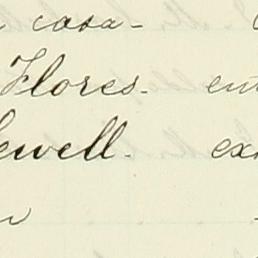 casa-
Flores- en
ewell. ex